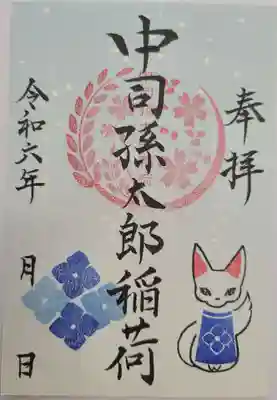 奉拝
中司孫太郎稲荷
令和六年　月　日